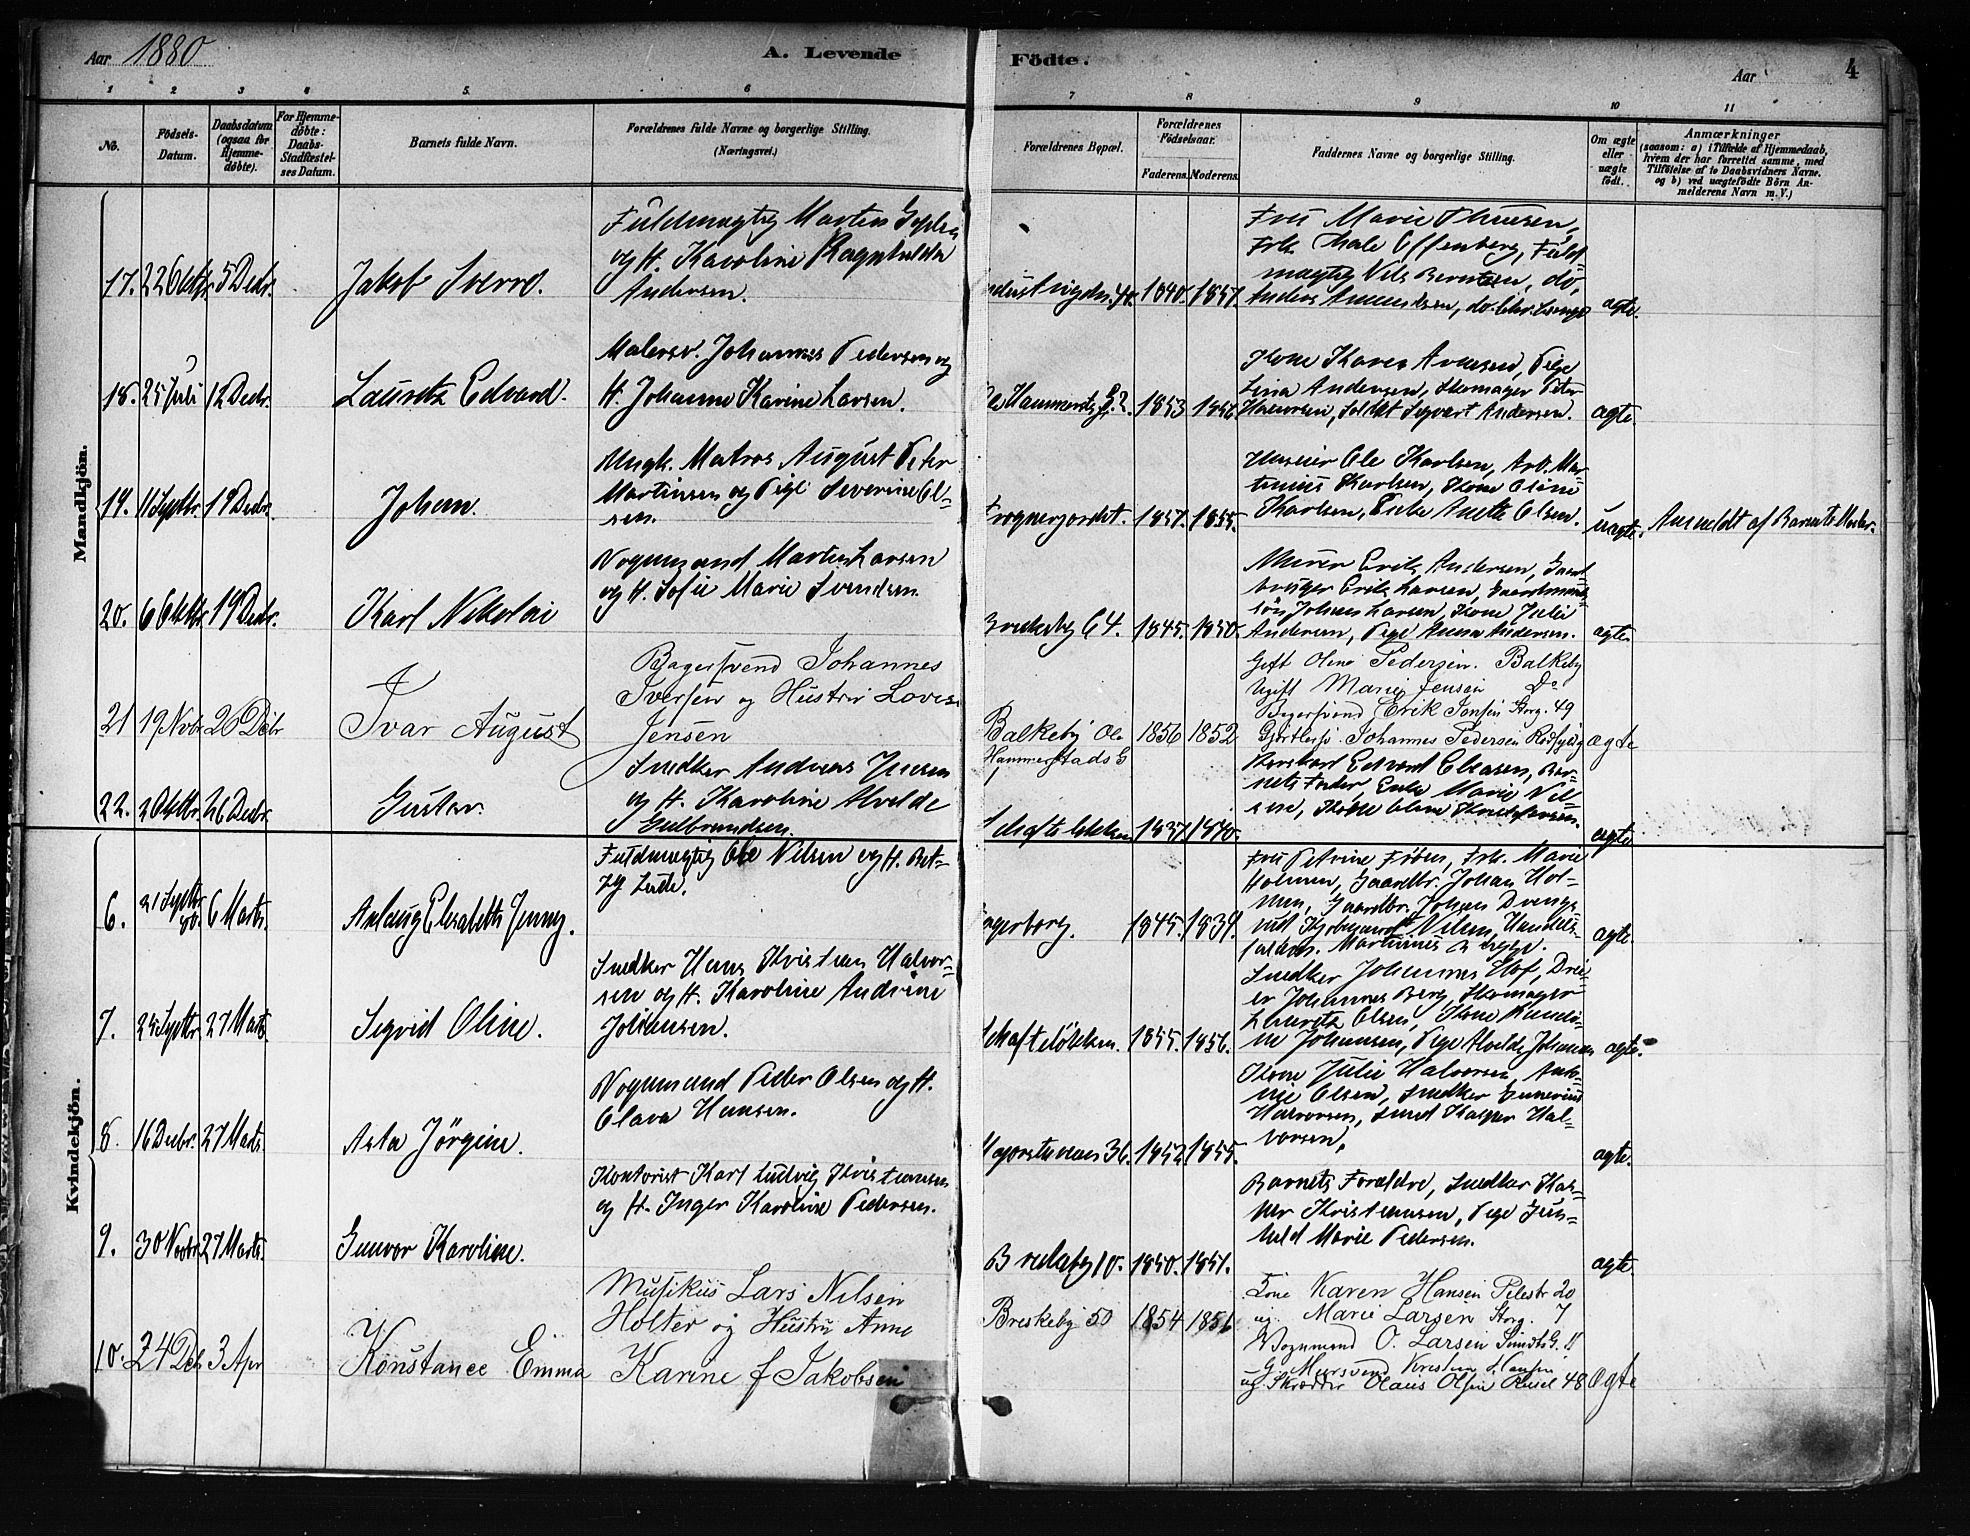 Aar 1880
A. Levende
Födte.
Aar
4
1 2 3 4 5. 6 7 8 9 10 11
No.
Födsels-
Datum.
Daabsdatum
(ogsaa for
Hjemme-
døbte).
For Hjemme-
døbte:
Daabs-
Stadfæstel-
ses Datum.
Barnets fulde Navn.
Forældrenes fulde Navne og borgerlige Stilling.
(Næringsvei.)
Forældrenes Bopæl.
Forældrenes
Födselsaar.
Faderens. Moderens.
Faddernes Navne og borgerlige Stilling.
Om ægte
eller
uægte
født.
Anmærkninger
(saasom: a) i Tilfælde af Hjemmedaab,
hvem der har forrettet samme, med
Tilføielse af to Daabsvidners Navne.
og b) ved uægtefødte Börn An-
melderens Navn m. V.)
Mandkjön.
17. 22 Oktbr. 5 Decbr.
Jakob Sverre.
Fuldmægtig Morten
og H. Karoline Ragnhilda
Andersen.
1840. 1857.
Fru Marie Thuesen,
Frk. Offenberg, Fuld-
mægtig Nils Berntsen, do.
ægte.
18. 25 Juli 12 Decbr.
Lauritz Edvard.
Malersv. Johannes Pedersen og
H. Johanne Karine Larsen.
1853
Kone Karen Pige
Lina Andersen, Skomager Peter
Halvorsen, Soldat Sigvart Andersen.
ægte.
19. 11 Septbr. 19 Decbr.
Johan.
Ungk. Matros August Peter
Martinsen og Pige Severine Ol-
sen.
Frognerjordet. 1857. 1855.
Ole Karlsen, Arb. Mar-
tinius Karlsen, Kone Oline
Karlsen, Enke Anette Olsen.
uægte.
Anmeldt af Barnets Moder.
20. 6 Oktbr. 19 Decbr.
Karl Nikolai
Vognmand Martin Larsen
og H. Sofie Marie Svendsen.
Briskeby 64. 1845. 1850.
Murer Erik Andersen, Gaard-
bruger Erik Larsen, Gaardmand-
søn Johan Larsen, Kone Julie
Andersen, Pige Anna Andersen.
ægte
21 19 Novbr 26 Debr
Ivar August
Bagersvend Johannes
Iversen og Hustru Lovise
Jensen
Balkeby Ole
Hammerstads G
1
1856 1852
Gift Olene Pedersen. Balkeby
Ugift Marie Jensen Do
Bagersvend Erik Storg. 49
Johannes Pedersen
ægte
22. 2 Oktbr. 26 Decbr.
Gustav.
Snedker Andreas Jensen
og H. Karoline Alvilde
Gulbrandsen.
1837. 1840.
Edvard Olausen, Bar-
nets Fader, Enke Marie Nil-
sen, Kone Oline Kristofersen.
ægte
Kvindekjön.
6. 21 Septbr. 6 Marts.
Aslaug Elisabeth Jenny.
Fuldmægtig Ole Nilsen og H. Bet-
zy Lude.
1845. 1839.
Fru Petrine Frk. Marie
Holmen, Gaardbr. Johan Hol-
men, Gaardbr. Johan
Kjøbmand Nilsen, Handels-
Martinius
ægte.
7. 25 Septbr. 27 Marts.
Sigrid Oline.
Snedker Hans Kristian Halvor-
sen og H. Karoline Andrine
Johansen.
Schafteløkken. 1855. 1856.
Snedker Johannes Elof, Drei-
er Johannes Berg, Skomager
Lauritz Olsen, Kone
Johansen, Pige Alvilde Johansen
ægte.
8. 16 Decbr. 27 Marts.
Asta Jörgine.
Vognmand Peder Olsen og H.
Olava Hansen.
Majorstuveien 36. 1852 1855.
Kone Julie Halvorsen,
Olsen, Snedker
Halvorsen, Smed Kasper Hal-
vorsen,
ægte.
9. 30 Novbr 27 Marts.
Gunvor Karoline.
Kontorist Karl Ludvig Kristiansen
og H. Inger Karoline Pedersen.
Briskeby 10. 1850. 1851.
Barnets Forældre, Snedker Kas-
per Kristiansen, Pige Gun-
hild Marie Pedersen.
ægte.
10. 24 Deb 3 Apr
Konstance Emma
Musikus Lars Nilsen
Holter og Hustru Anne
Karine f Jakobsen
Briskeby 50 1854 1856
Kone Karen Hansen Pilestr 20
ug. Marie Larsen Storg. 7
Vognmand O. Larsen SmedtsG. 11
G. Mursvend Kristian Hansen
ug Skrædder Olaus Olsen 48
Ægte